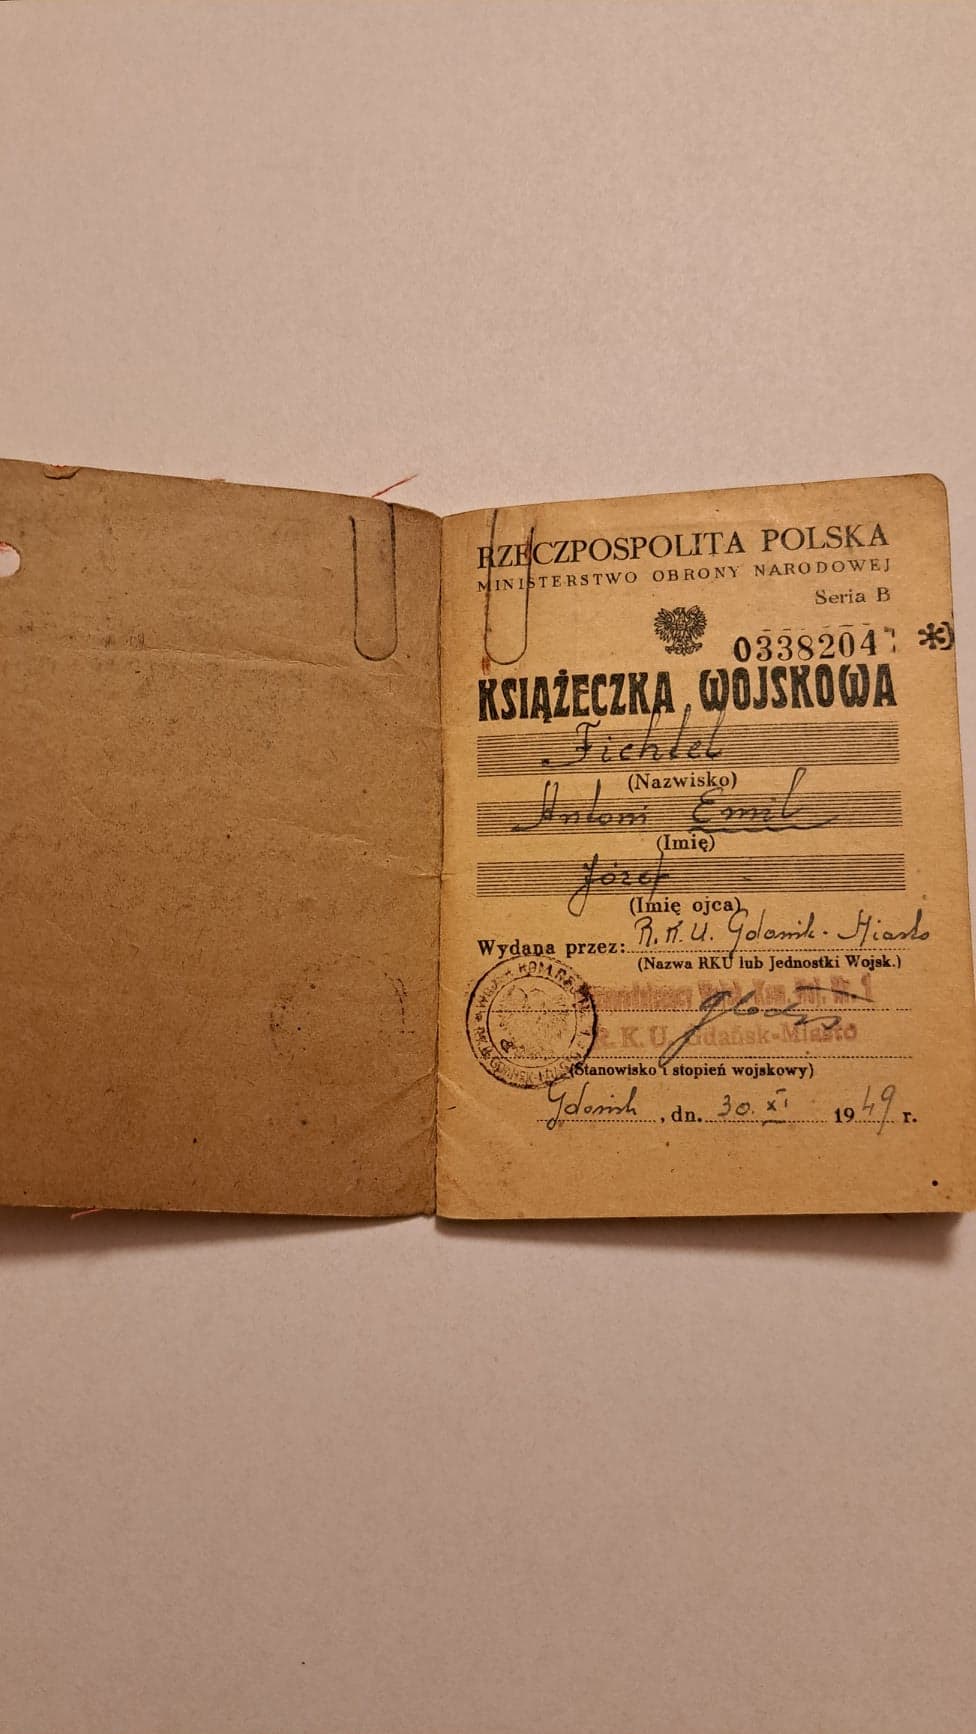 RZECZPOSPOLITA POLSKA
MINISTERSTWO OBRONY NARODOWEJ
Seria B
0338204 *)
KSIĄŻECZKA WOJSKOWA
Fichtel
(Nazwisko)
Antoni Emil
(Imię)
Józef
(Imię ojca)
Wydana przez: R.K.U. Gdańsk-Miasto
(Nazwa RKU lub Jednostki Wojsk.)
R.K.U. Gdańsk-Miasto
(Stanowisko i stopień wojskowy)
Gdańsk, dn. 30. XI 1949 r.